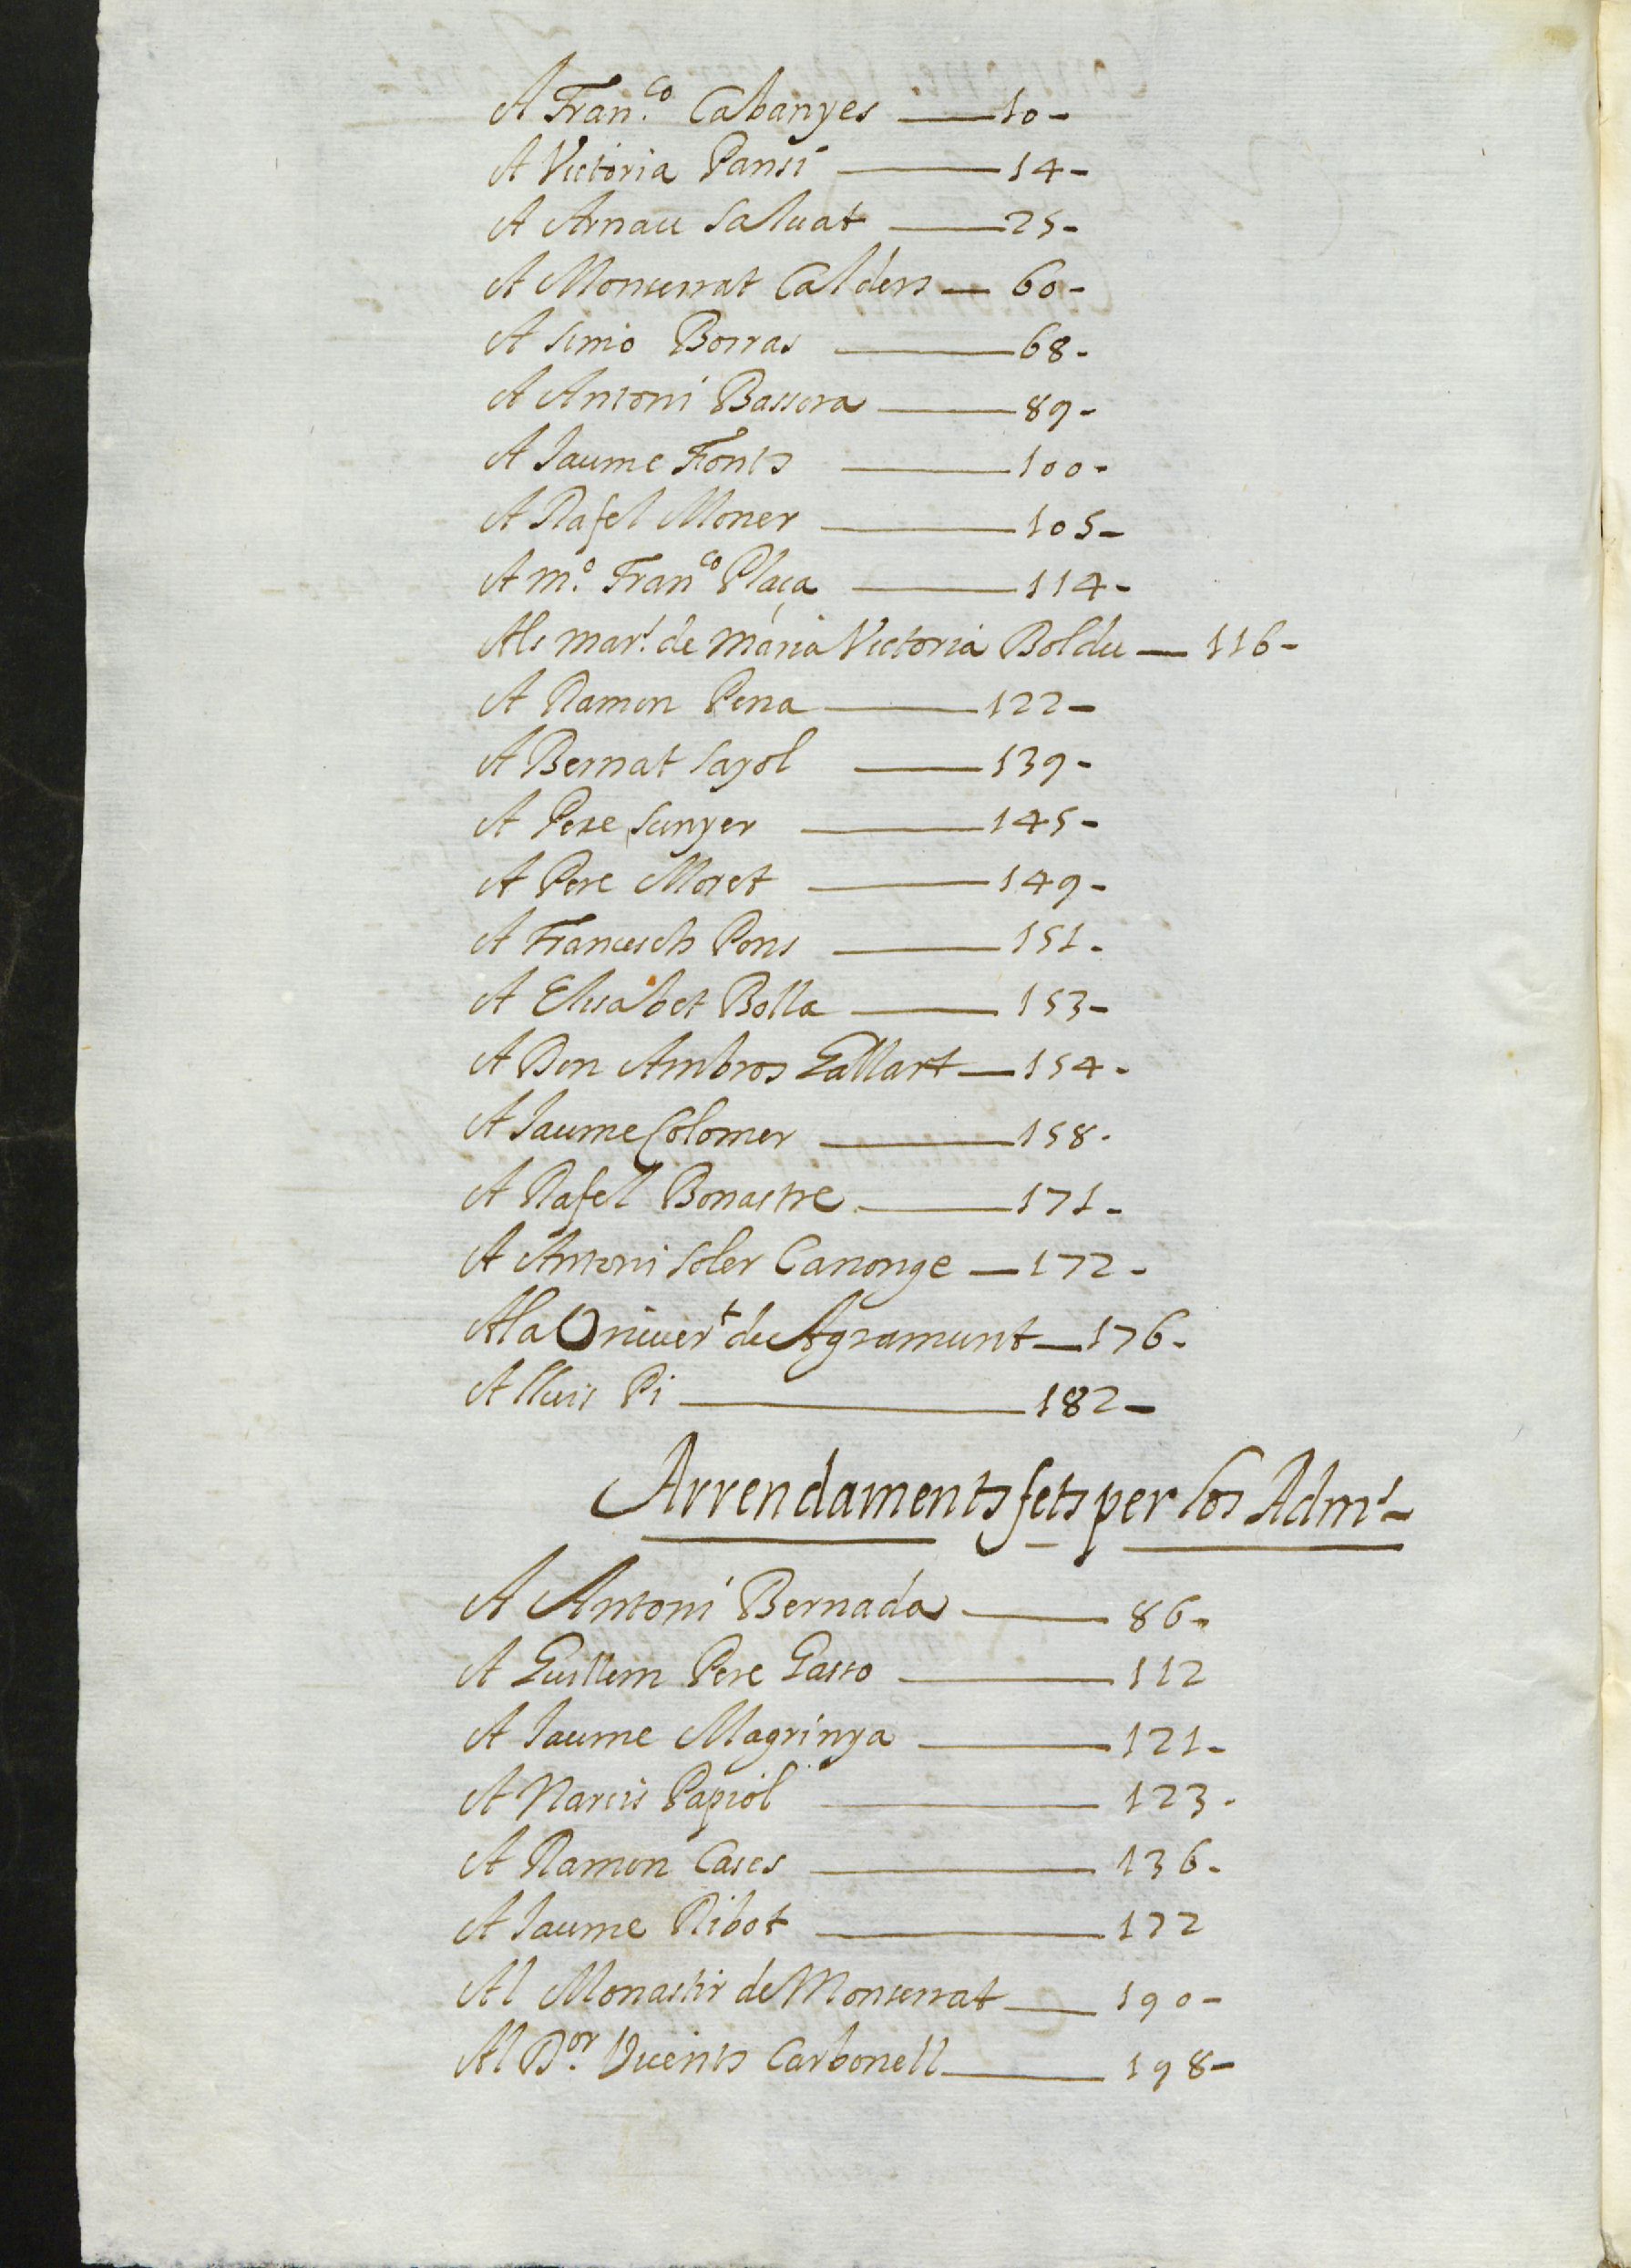 A Fran.co Cabanyes — 10-
A Victoria Pansi — 14-
A Arnau saluat — 25-
A Monserrat Calders — 60-
A simo Borras — 68-
A Antoni Bassera — 89-
A Jaume Fonts — 100-
A Rafel Moner — 105-
A m.o Fran.co Plaça — 114-
Als mar.s de maria Victoria Boldu — 116-
A Ramon Pena — 122-
A Bernat sayol — 139-
A Pere sunyer — 145-
A Pere Moret — 149-
A Francesch Pons — 151-
A Elisabet Bolla — 153-
A Don Ambros Gallart — 154-
A Jaume Colomer — 158-
A Rafel Bonastre — 171-
A Antoni soler Canonge — 172-
A la Univert de Agramunt — 176-
A lluis Pi — 182-
Arrendaments fets per los Adms-
A Antoni Bernada — 86-
A Guillem Pere Gasso — 112
A Jaume Magrinya — 121-
A Narcis Papiol — 123-
A Ramon Cases — 136-
A Jaume Ribot — 172
Al Monastir de Monserrat — 190-
Al D.or Vicents Carbonell — 198-